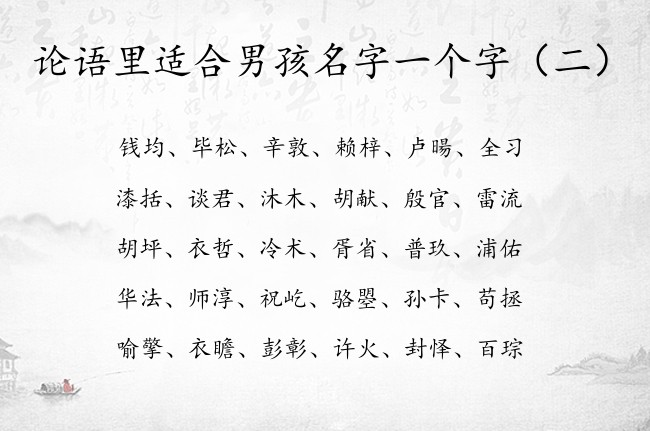 论语里适合男孩名字一个字（二）
钱均、毕松、辛敦、赖梓、卢暘、全习
漆括、谈君、沐木、胡献、殷官、雷流
胡坪、衣哲、冷术、胥省、普玖、浦佑
华法、师淳、祝屹、骆曌、孙卡、苟拯
喻擎、衣瞻、彭彰、许火、封怿、百琮